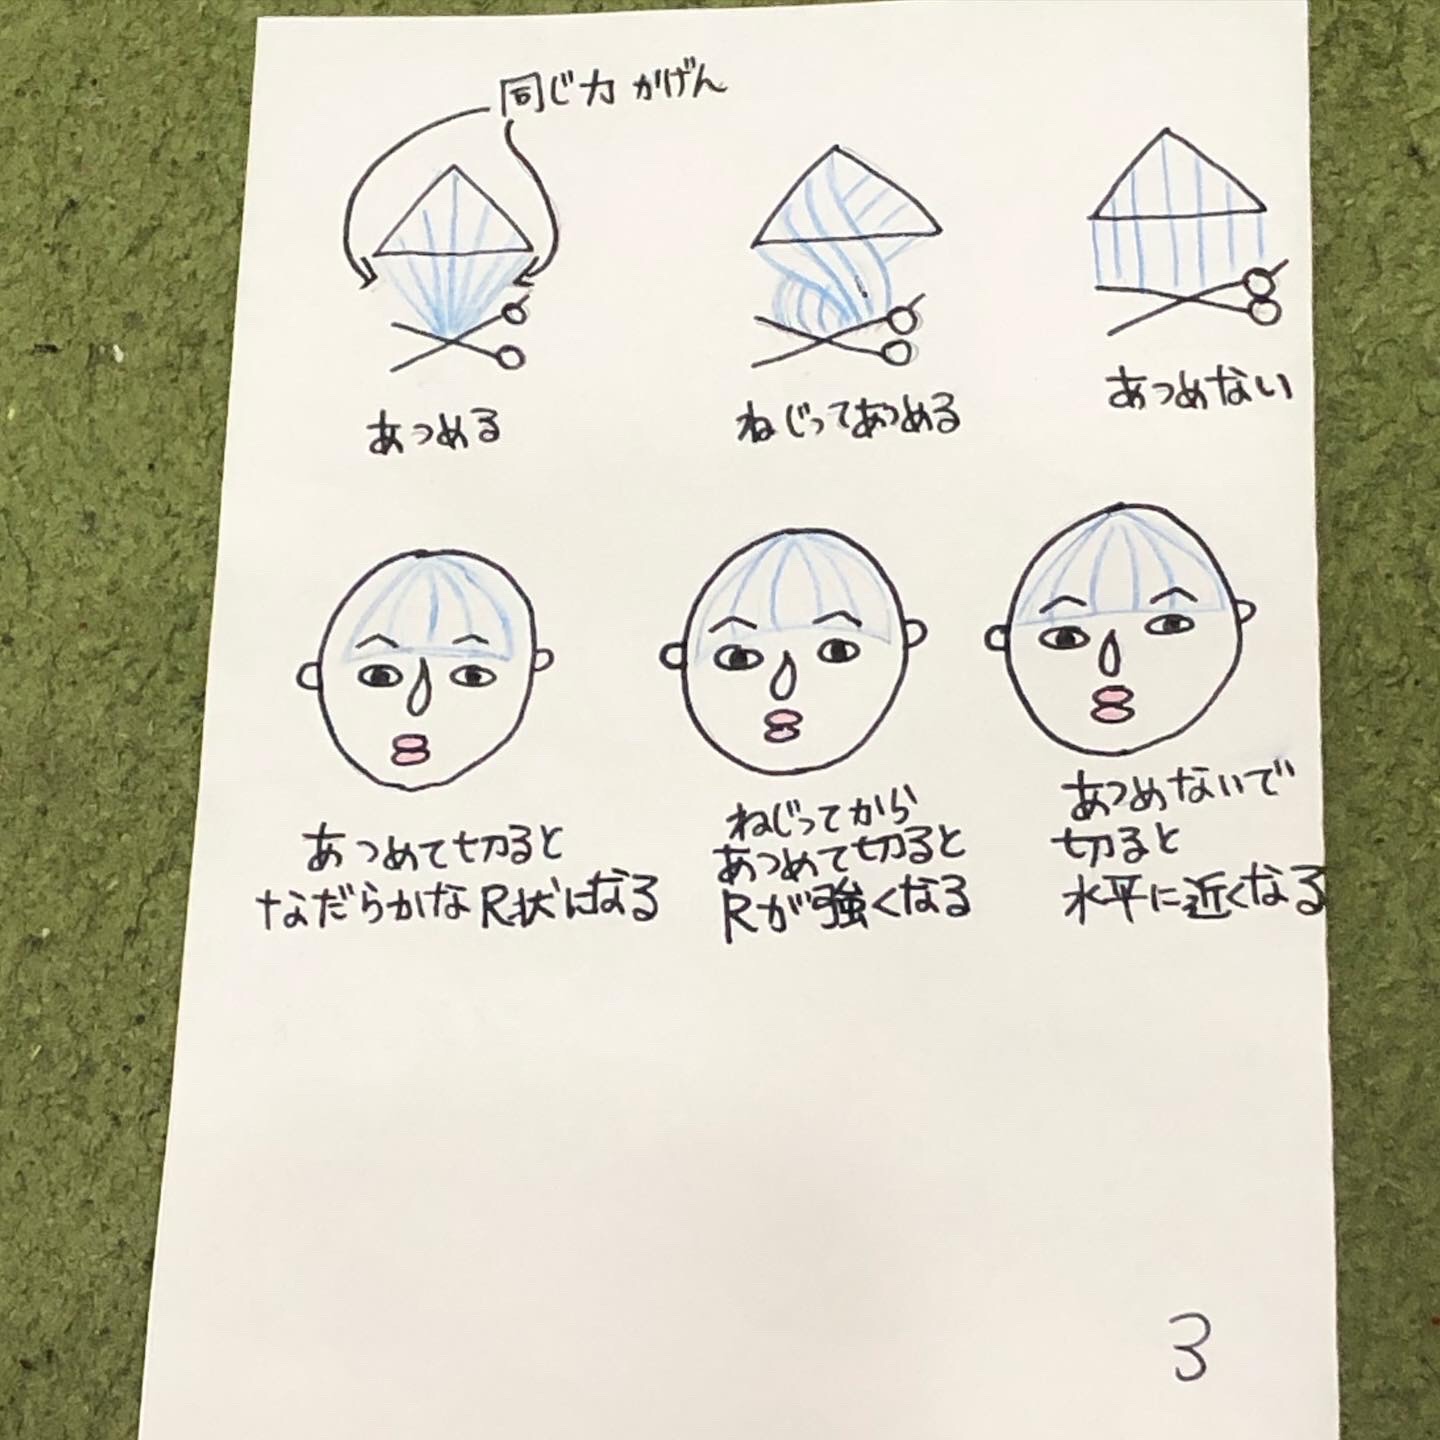 同じ力 かげん
あつめる
ねじってあつめる
あつめない
あつめて切ると
なだらかなR状になる
ねじってから
あつめて切ると
Rが強くなる
あつめないで
切ると
水平に近くなる
3